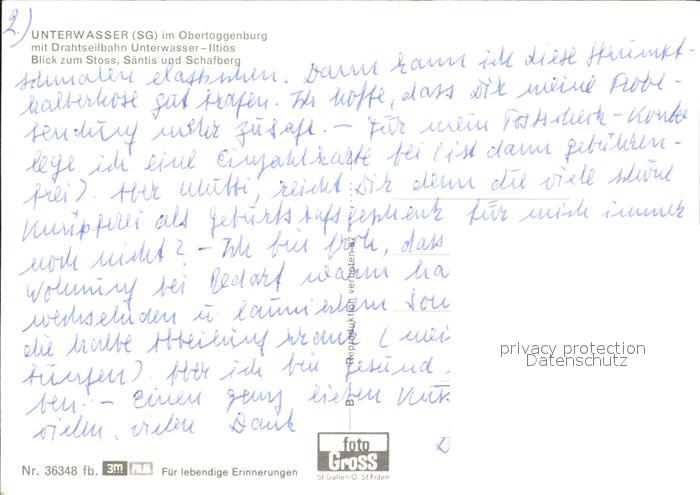 2)
UNTERWASSER (SG) im Obertoggenburg
mit Drahtseilbahn Unterwasser – Iltios
Blick zum Stoss, Säntis und Schafberg
schmalen elastischen. Darum kann ich diese Strumpf-
halterhose gut tragen. Ich hoffe, dass Dir meine Probe-
sendung mehr zusagt. – Für mein Postscheck-Konto
lege ich eine Einzahlkarte bei (ist dann gebühren-
frei). Aber Mutti, reicht Dir denn die viele schöne
Knüpferei als Geburtstagsgeschenk für mich immer
noch nicht? – Ich bin froh, dass
Wohnung bei Bedarf warm ha
wechselnden u. launischem Som
die halbe Abteilung krank (
). Aber ich bin gesund
ben. – Einen ganz lieben
vielen, vielen Dank
D
Reproduktion verboten
privacy protection
Datenschutz
foto
GROSS
St Gallen O St Fiden
Nr. 36348 fb.
3m
Für lebendige Erinnerungen